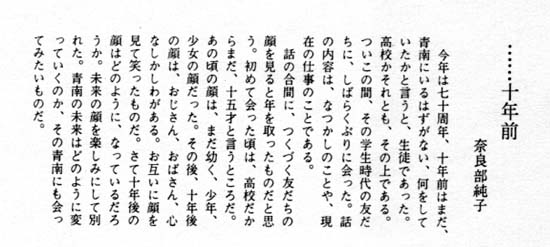 ……十年前
奈良部純子
今年は七十周年、十年前はまだ、
青南にいるはずがない、何をして
いたかと言うと、生徒であった。
高校かそれとも、その上である。
ついこの間、その学生時代の友だ
ちに、しばらくぶりに会った。話
の内容は、なつかしのことや、現
在の仕事のことである。
話の合間に、つくづく友だちの
顔を見ると年を取ったものだと思
う。初めて会った頃は、高校だか
らまだ、十五才と言うところだ。
あの頃の顔は、まだ幼く、少年、
少女の顔だった。その後、十年後
の顔は、おじさん、おばさん、心
なしかしわがある。お互いに顔を
見て笑ったものだ。さて十年後の
顔はどのように、なっているだろ
うか。未来の顔を楽しみにして別
れた。青南の未来はどのように変
っていくのか、その青南にも会っ
てみたいものだ。